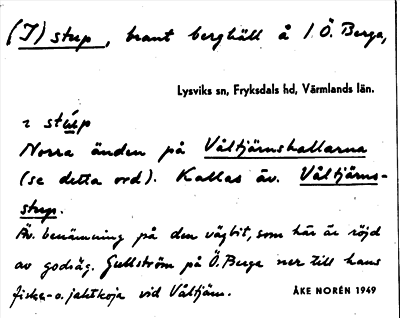 (I) stup, brant berghäll å I. Ö. Berga,
Lysviks sn, Fryksdals hd, Värmlands län.
i stúp
Norra änden på Våltjärnshallarna
(se detta ord). Kallas äv. Våltjärns-
stup.
Äv. benämning på den vägbit, som här är röjd
av godsäg. Gullström på Ö. Berga ner till hans
fiske- o. jaktkoja vid Våltjärn.
ÅKE NORÉN 1949